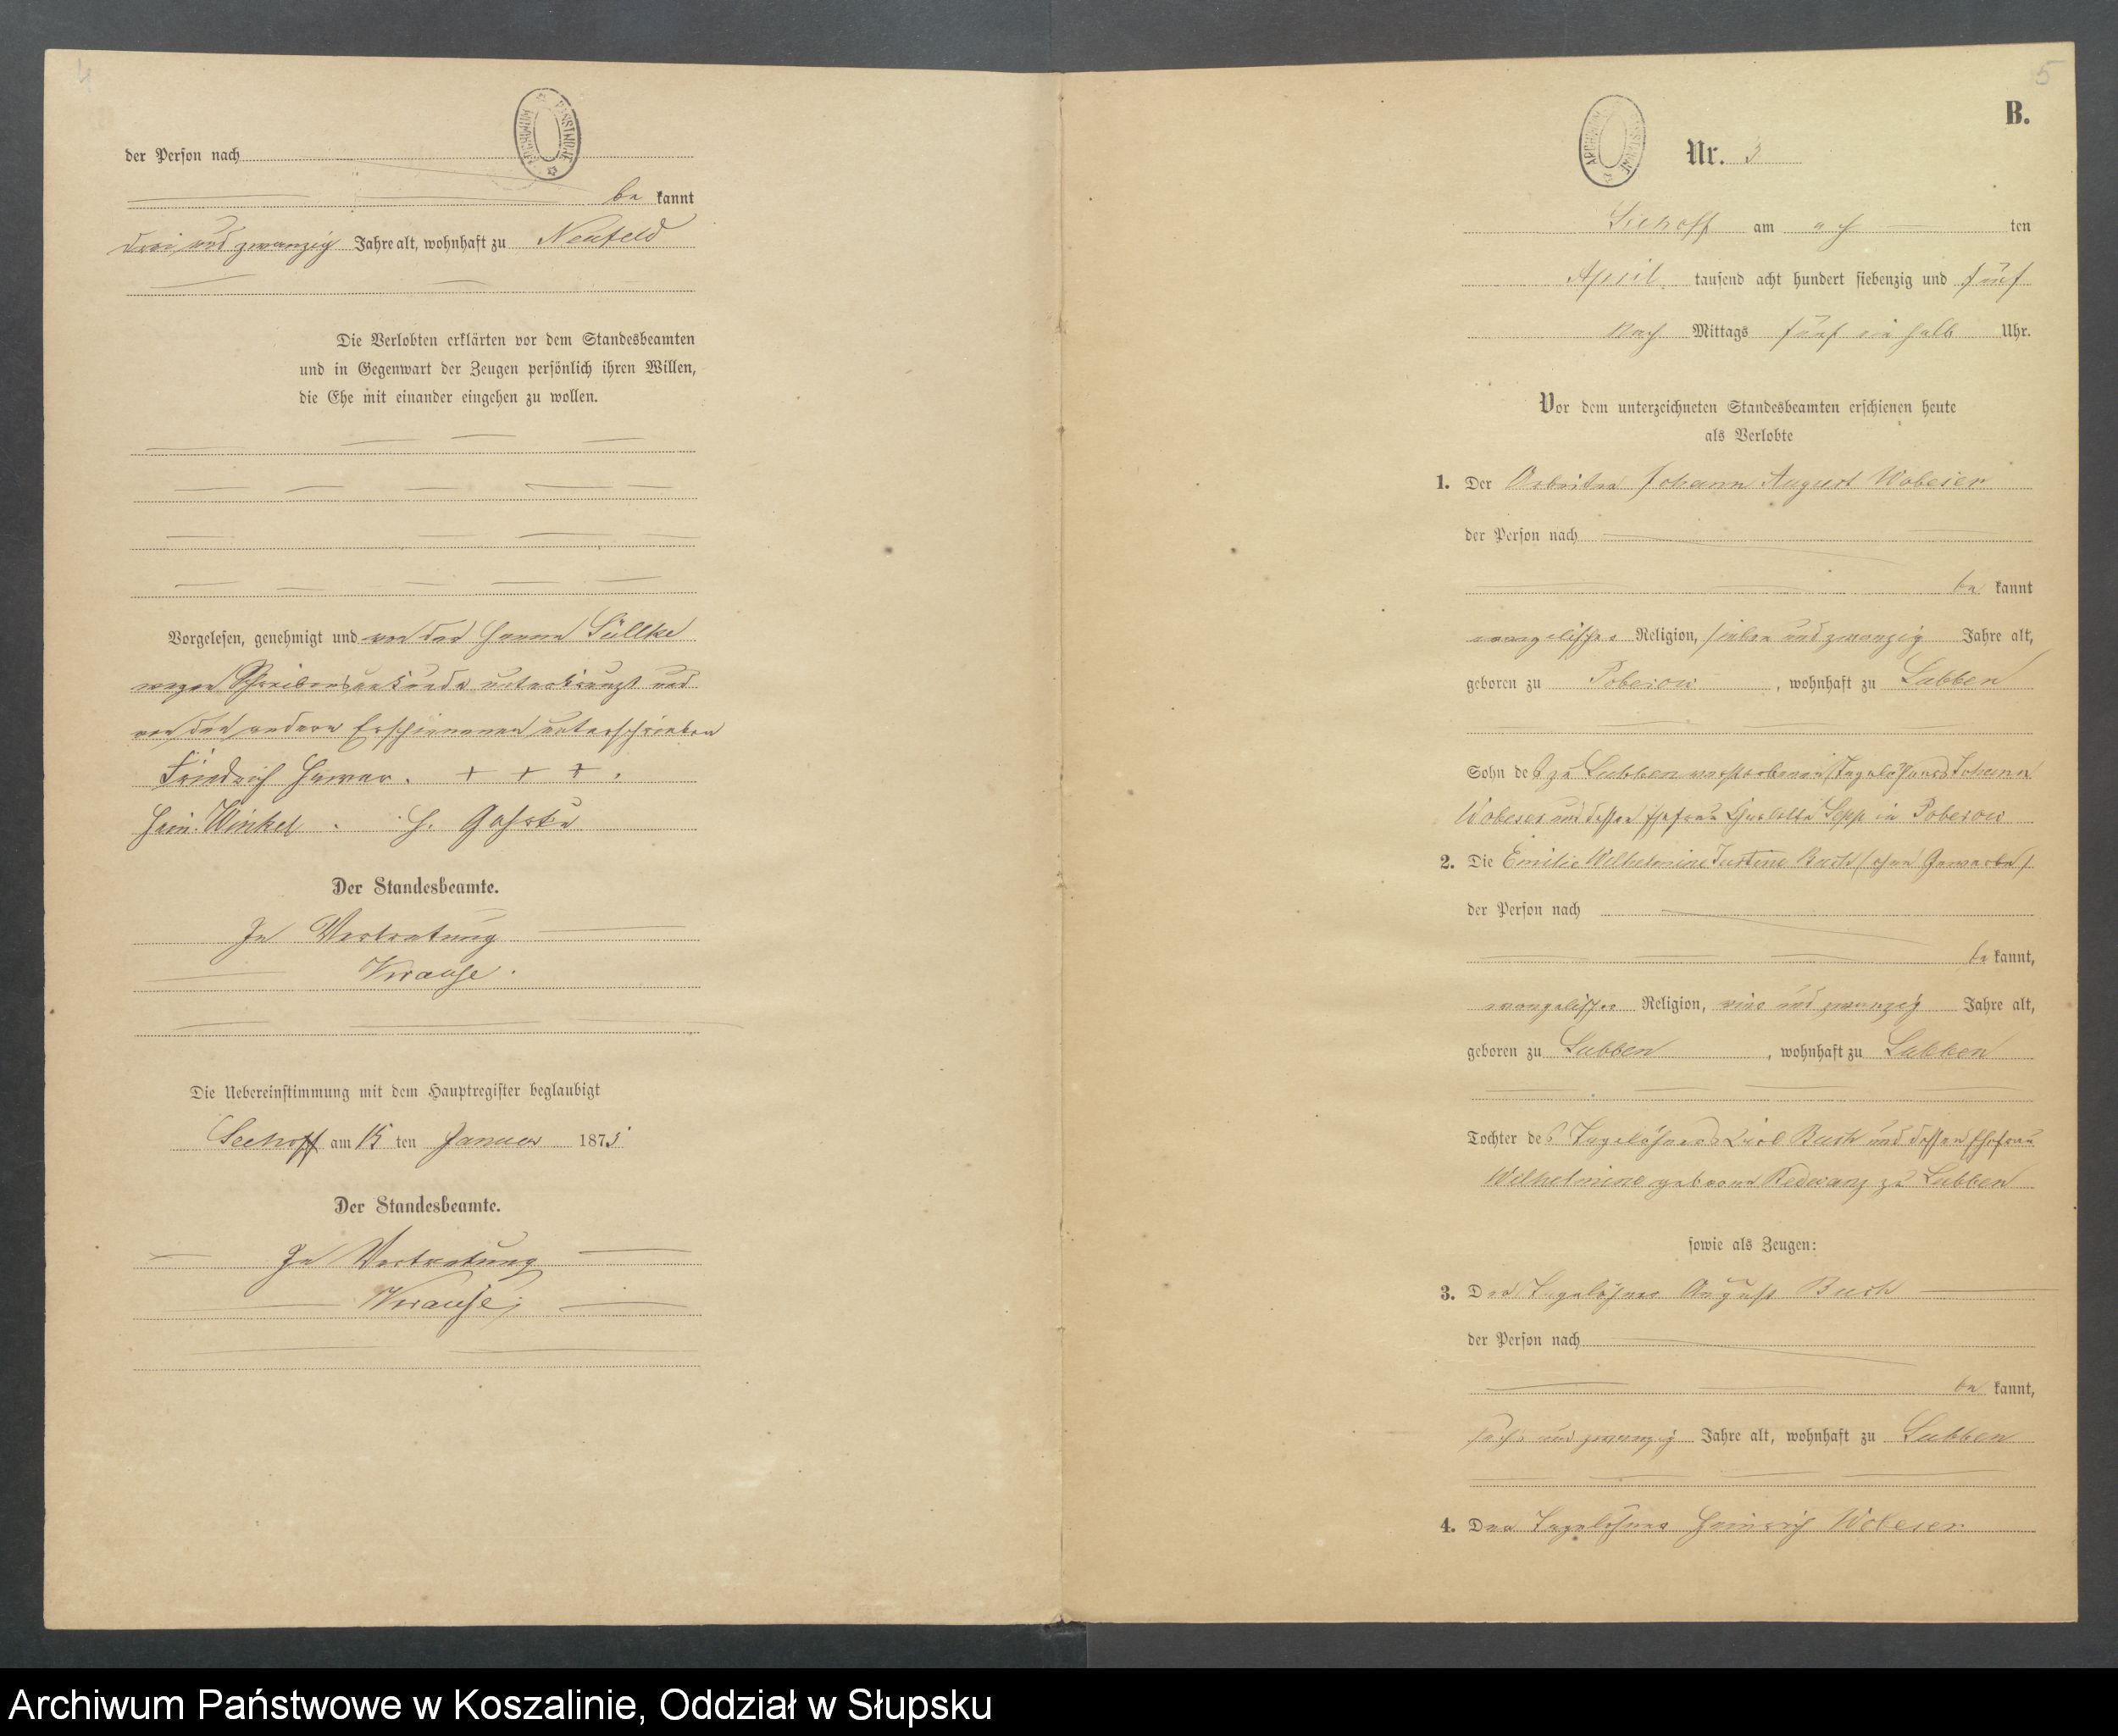 4
der Person nach
be kannt
drei und zwanzig Jahre alt, wohnhaft zu Neufeld
Die Verlobten erklärten vor dem Standesbeamten
und in Gegenwart der Zeugen persönlich ihren Willen,
die Ehe mit einander eingehen zu wollen.
Vorgelesen, genehmigt und von der
wegen Schreibensunkunde unterkreuzt und
von den andern Erschienenen unterschrieben
Friedrich + + +.
Hein. Winkel. H.
Der Standesbeamte.
In Vertretung
Krause.
Die Uebereinstimmung mit dem Hauptregister beglaubigt
Seehoff am 15 ten Januar 1875
Der Standesbeamte.
In Vertretung
Krause
5
B.
Nr. 3
Seehoff am ten
April tausend acht hundert siebenzig und fünf
Nach Mittags fünf ein halb Uhr.
Vor dem unterzeichneten Standesbeamten erschienen heute
als Verlobte
1. Der Arbeiter Johann August Wobeser
der Person nach
be kannt
evangelischer Religion, sieben und zwanzig Jahre alt,
geboren zu Poberow, wohnhaft zu Lubben
Sohn des zu Lubben verstorbenen Tagelöhners Johann
Wobeser und dessen Ehefrau in Poberow
2. Die Emilie Wilhelmine Justine (ohne Gewerbe)
der Person nach
be kannt,
evangelischer Religion, ein und zwanzig Jahre alt,
geboren zu Lubben, wohnhaft zu Lubben
Tochter des Tagelöhners und dessen Ehefrau
Wilhelmine geborne zu Lubben
sowie als Zeugen:
3. Der Tagelöhner August
der Person nach
be kannt,
sechs und zwanzig Jahre alt, wohnhaft zu Lubben
4. Der Tagelöhner Heinrich Wobeser
ARCHIWUM PAŃSTWOWE
Archiwum Państwowe w Koszalinie, Oddział w Słupsku